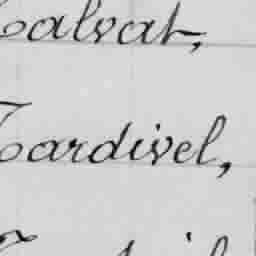 Calvat,
Tardivel,